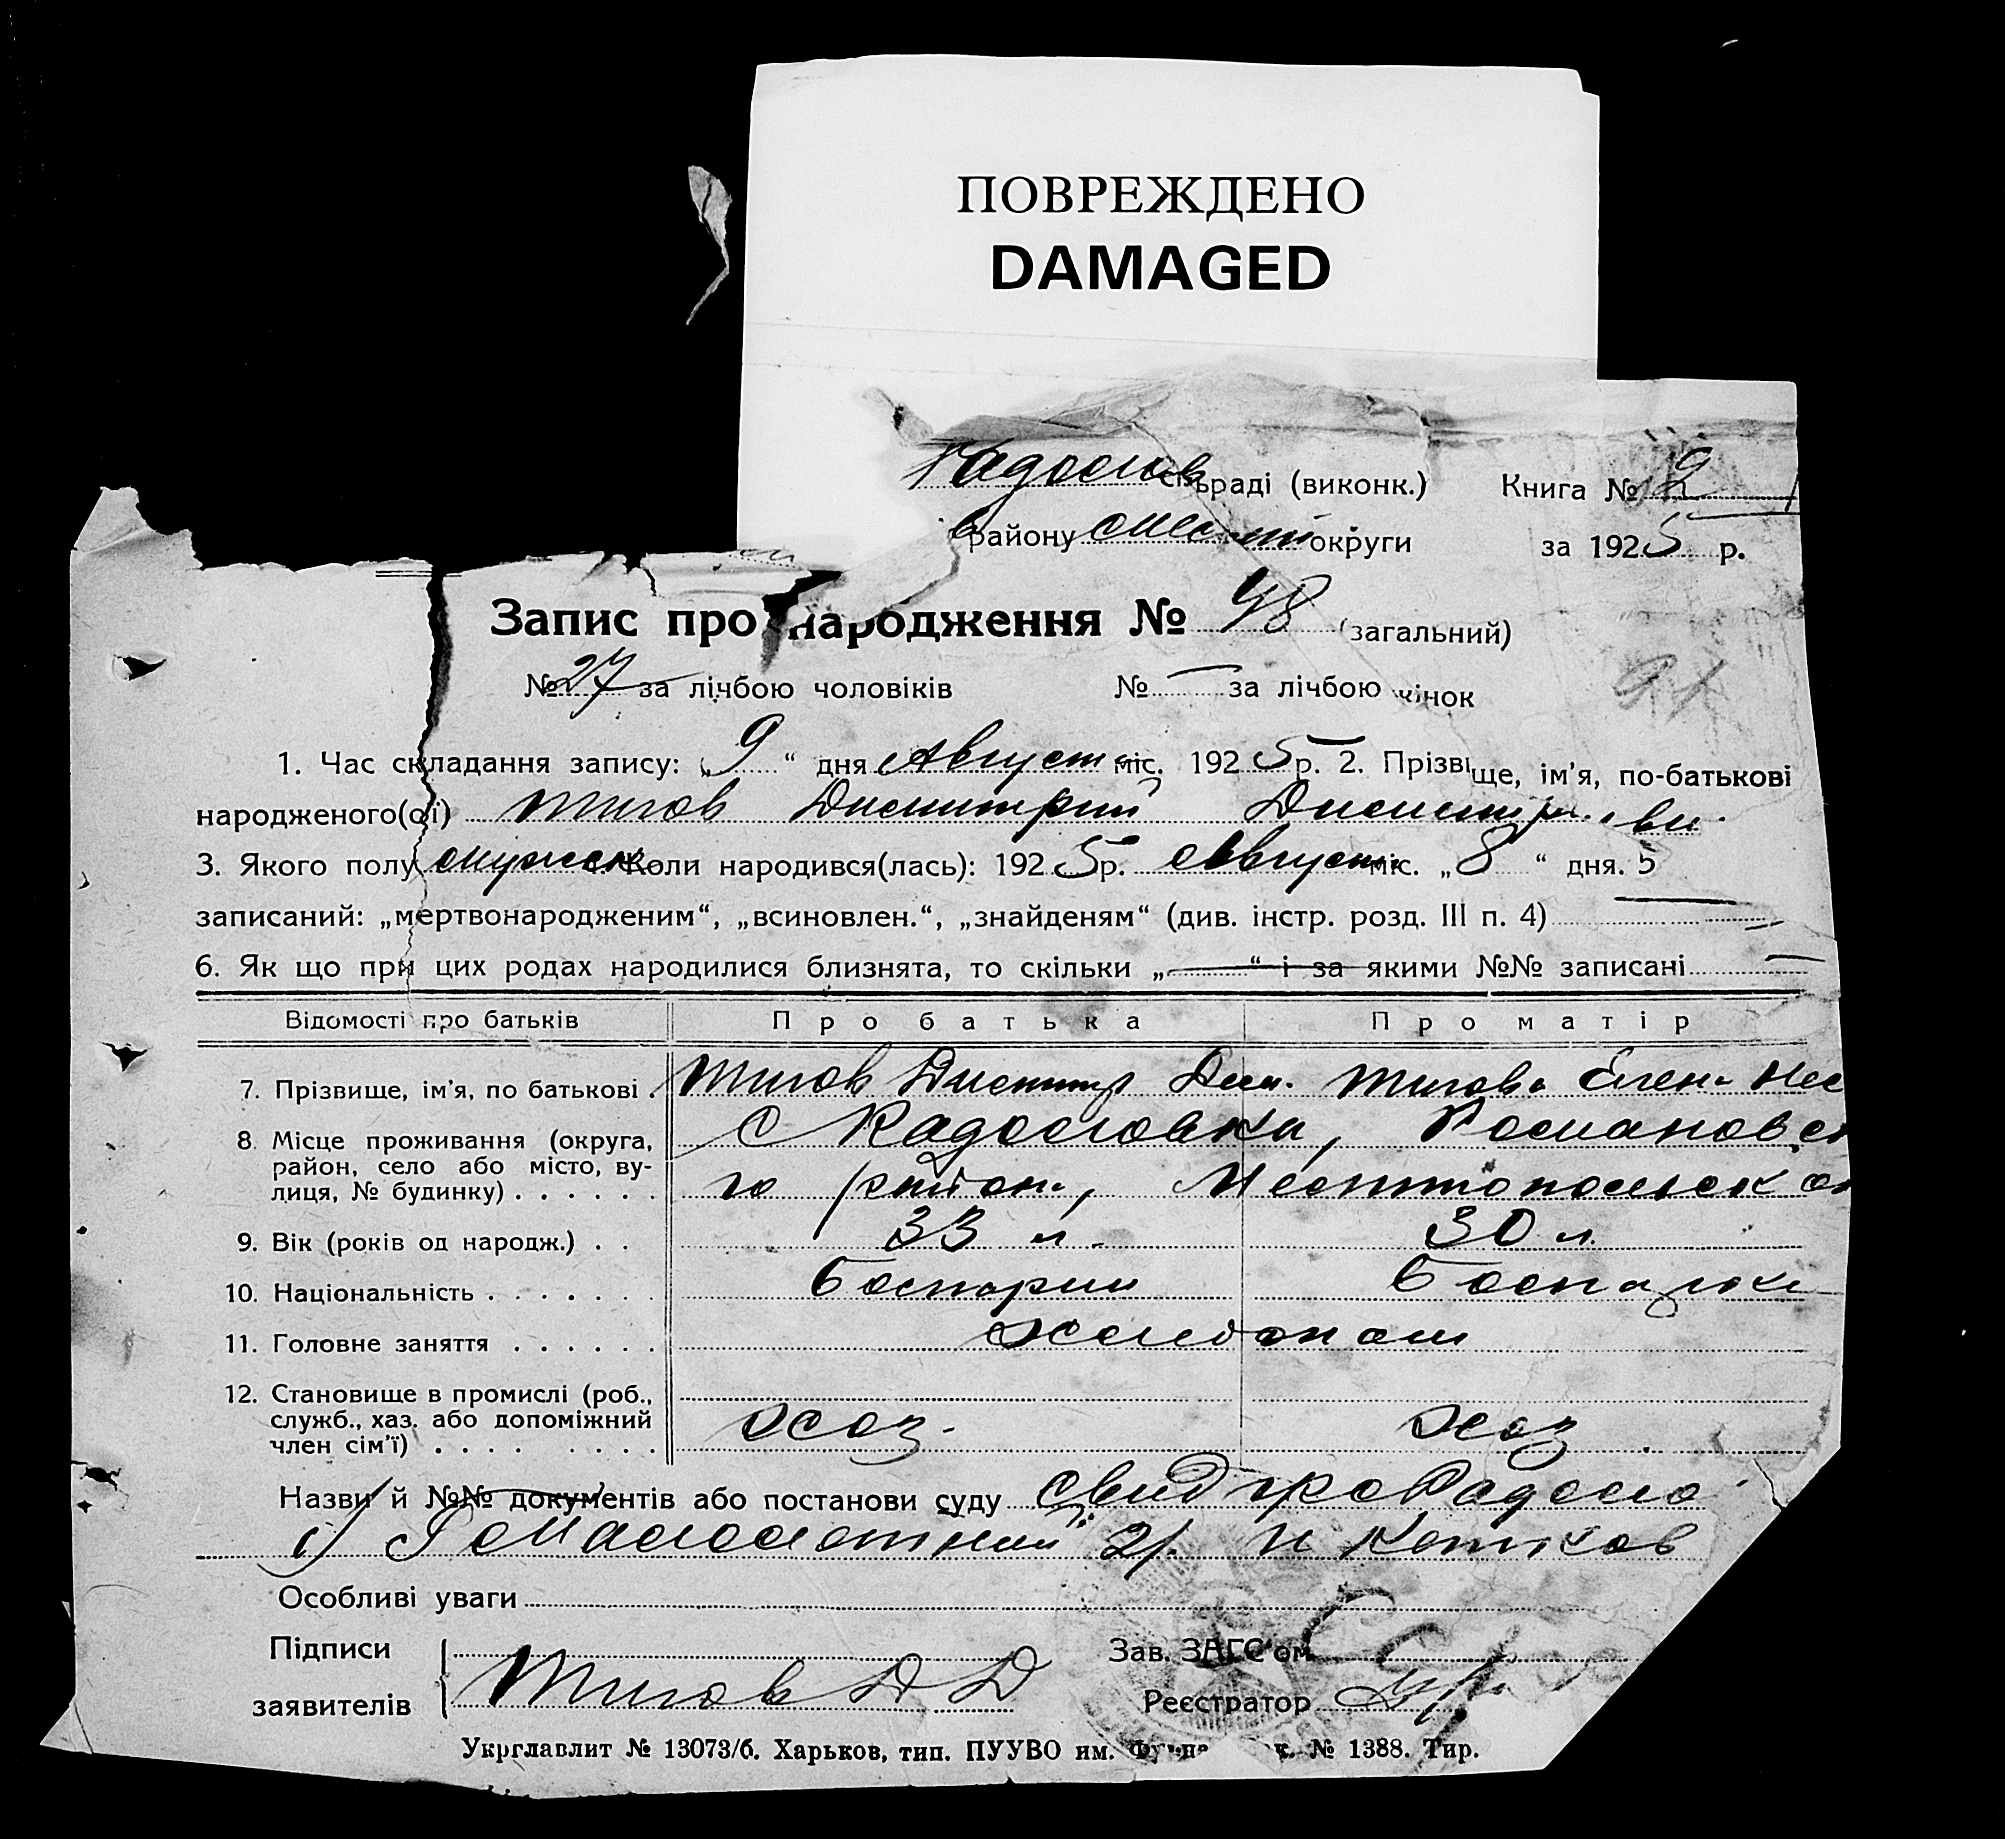 ПОВРЕЖДЕНО
DAMAGED
Радолов сільраді (виконк.) Книга № 2
району округи за 1925 р.
Запис про народження № 48 (загальний)
№ 27 за лічбою чоловіків № — за лічбою жінок
1. Час складання запису: „9“ дня Август міс. 1925 р. 2. Прізвище, ім'я, по-батькові
народженого(ої) Тигов Дмитрий
3. Якого полу мужск Коли народився(лась): 1925 р. Август міс. „8“ дня. 5
записаний: „мертвонародженим“, „всиновлен.“, „знайденям“ (див. інстр. розд. III п. 4) —
6. Як що при цих родах народилися близнята, то скільки „—“ і за якими №№ записані —
Відомості про батьків Про батька Про матір
7. Прізвище, ім'я, по батькові . Тигов Дмитр Дм. Тигова Елена
8. Місце проживання (округа, район, село або місто, вулиця, № будинку) . . . . . . С Радоловка, Романовск
го района, Мелитопольск ок
9. Вік (років од народж.) . . 33 л. 30 л.
10. Національність . . . . . . . болгарин болгарка
11. Головне заняття . . . . . . хлебопаш
12. Становище в промислі (роб., служб., хаз. або допоміжний член сім'ї) . . . . . . . . хоз. хоз
Назви й №№ документів або постанови суду Свид
2) и
Особливі уваги
Підписи заявителів Тигов Д Д
Зав. ЗАГС'ом
Реєстратор
Укрглавлит № 13073/б. Харьков, тип. ПУУВО им. № 1388. Тир.